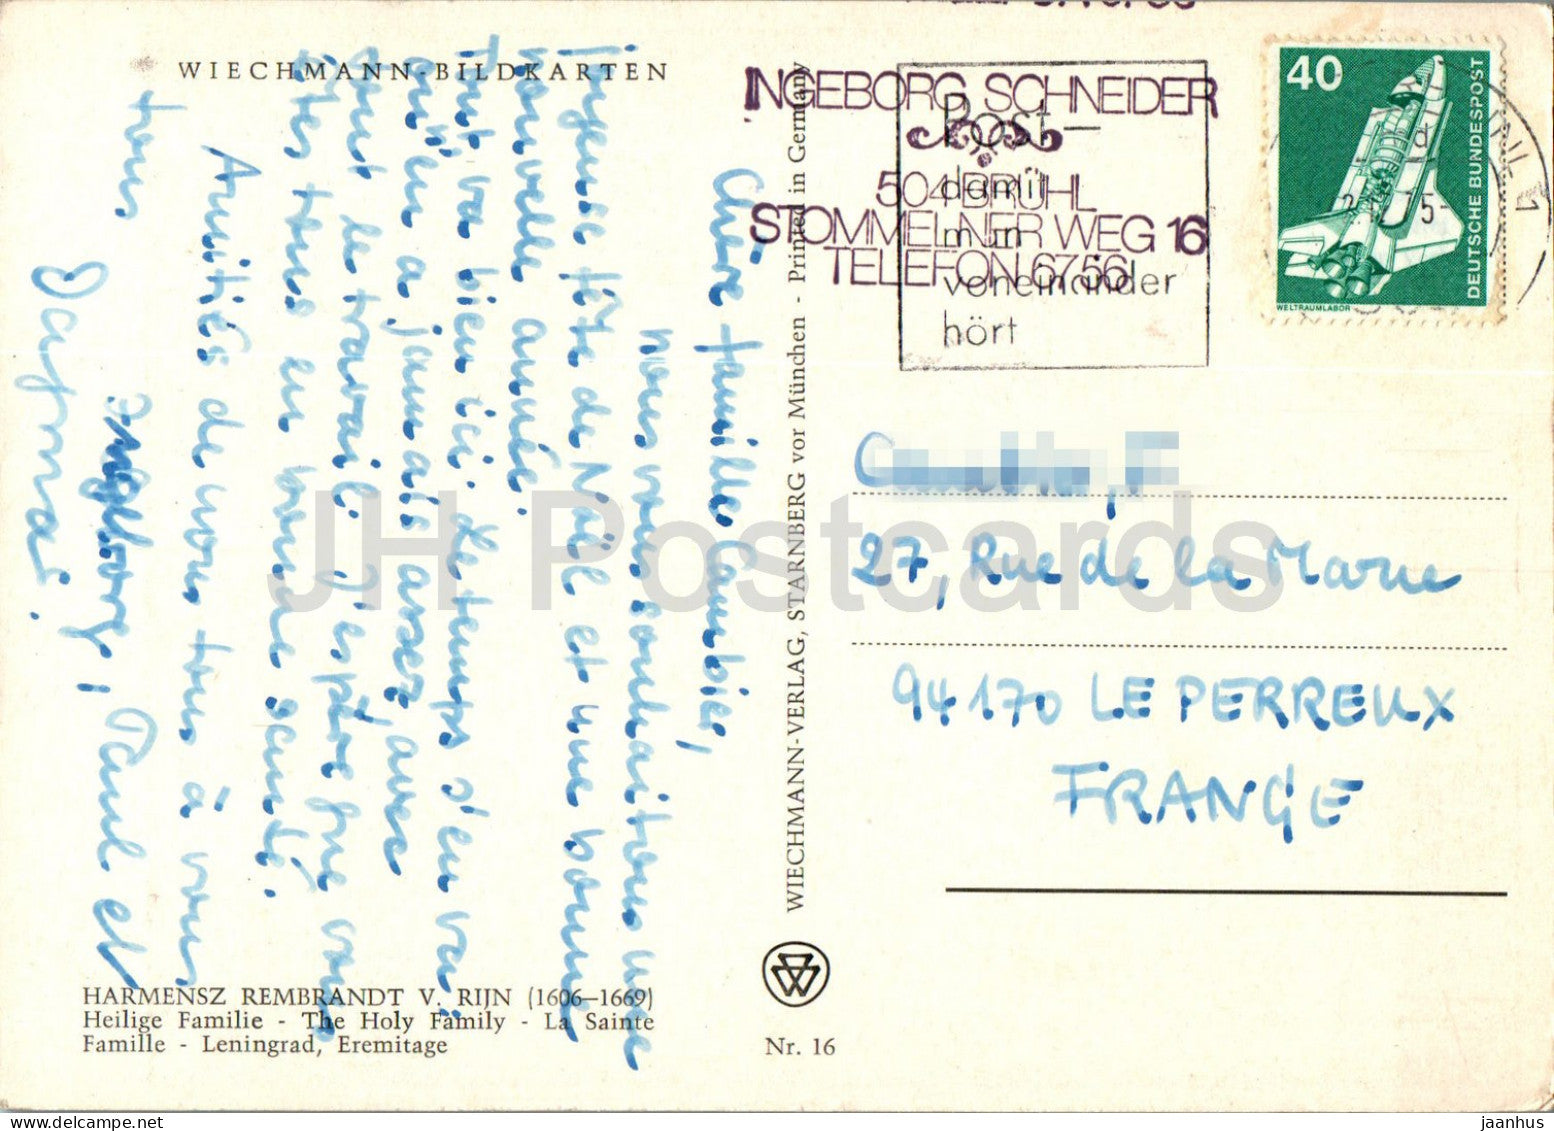 WIECHMANN-BILDKARTEN
Chère famille Cambier,
nous vous souhaitons une
joyeuse fête de Noël et une bonne
nouvelle année.
Tout va bien ici. Le temps s'en va
on en a jamais assez, avec
tout le travail. J'espère que vous
êtes tous en bonne santé.
Amitiés de nous tous à vous
tous
Ingeborg, Paul et
HARMENSZ REMBRANDT V. RIJN (1606–1669)
Heilige Familie - The Holy Family - La Sainte
Famille - Leningrad, Eremitage
WIECHMANN-VERLAG, STARNBERG vor München - Printed in Germany
Nr. 16
INGEBORG SCHNEIDER
504 BRÜHL
STOMMELNER WEG 16
TELEFON 6756
Post –
damit
man
voneinander
hört
40
DEUTSCHE BUNDESPOST
WELTRAUMLABOR
27, Rue de la Marne
94170 LE PERREUX
FRANCE
JH Postcards
www.delcampe.net
jaanhus